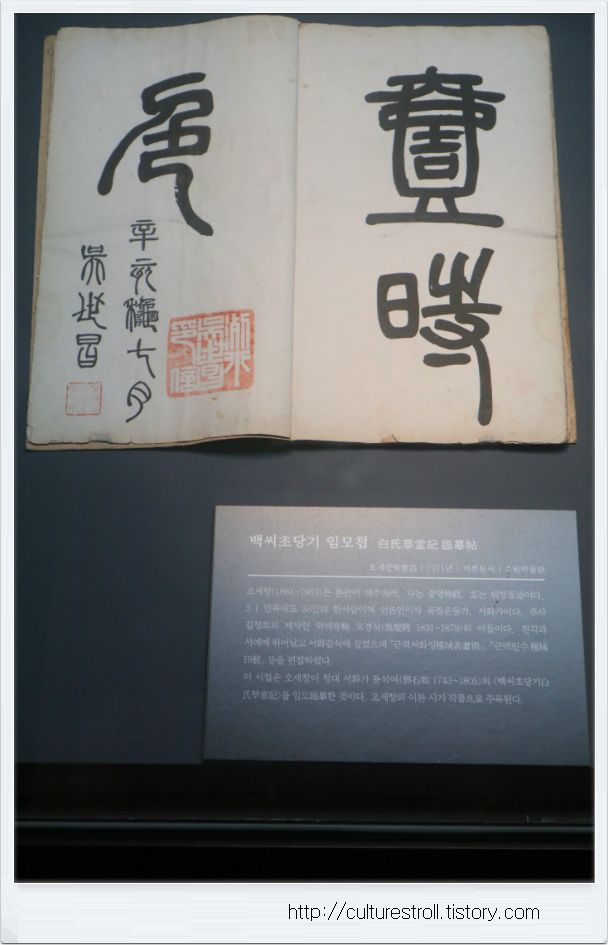 時
色
辛亥龝七月
吳世昌
백씨초당기 임모첩 白氏草堂記 臨摹帖
오세창吳世昌 | 1911년 | 지본묵서 | 수원박물관
오세창(1864~1953)은 본관이 해주海州, 자는 중명仲銘, 호는 위창葦滄이다.
3·1 민족대표 33인의 한사람이며 언론인이자 독립운동가, 서화가이다. 추사
김정희의 제자인 역매亦梅 오경석(吳慶錫 1831~1879)의 아들이다. 전각과
서예에 뛰어났고 서화감식에 깊었으며 『근역서화징槿域書畫徵』, 『근역인수 槿域
印藪』 등을 편집하였다.
이 서첩은 오세창이 청대 서화가 등석여(鄧石如 1743~1805)의 〈백씨초당기白
氏草堂記〉를 임모臨摹한 것이다. 오세창의 이른 시기 작품으로 주목된다.
http://culturestroll.tistory.com